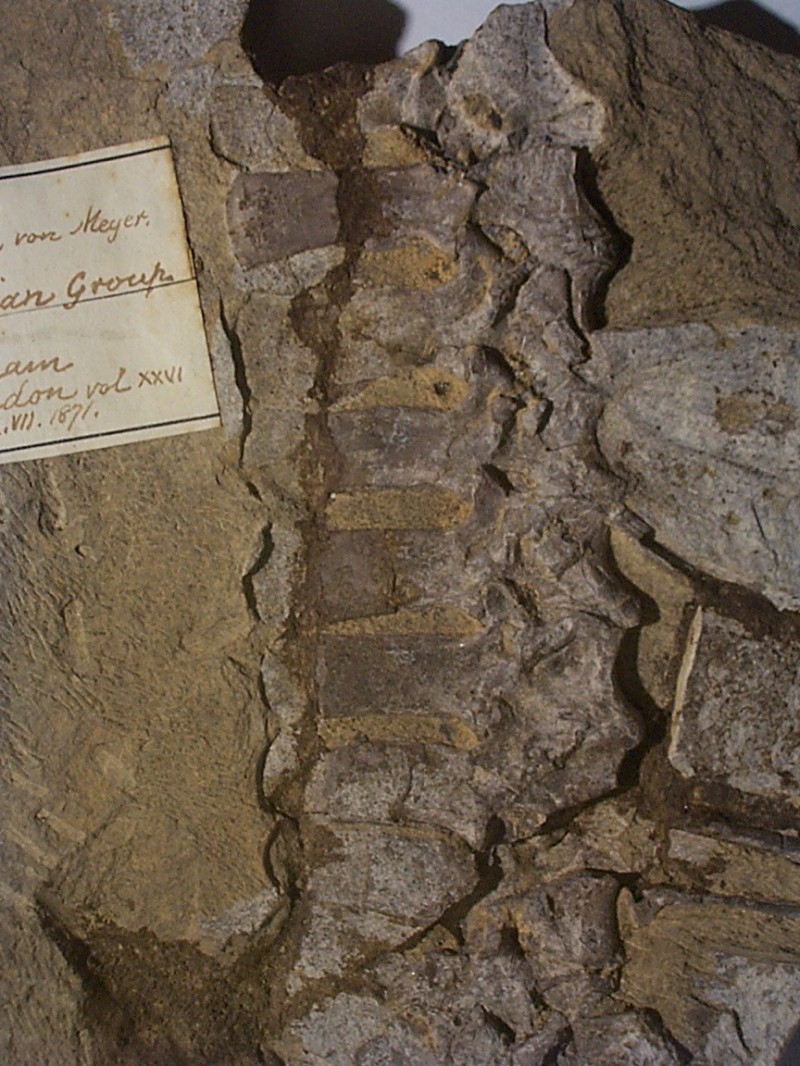 von Meyer.
ian Group.
am
don vol XXVI
.VII. 1871.